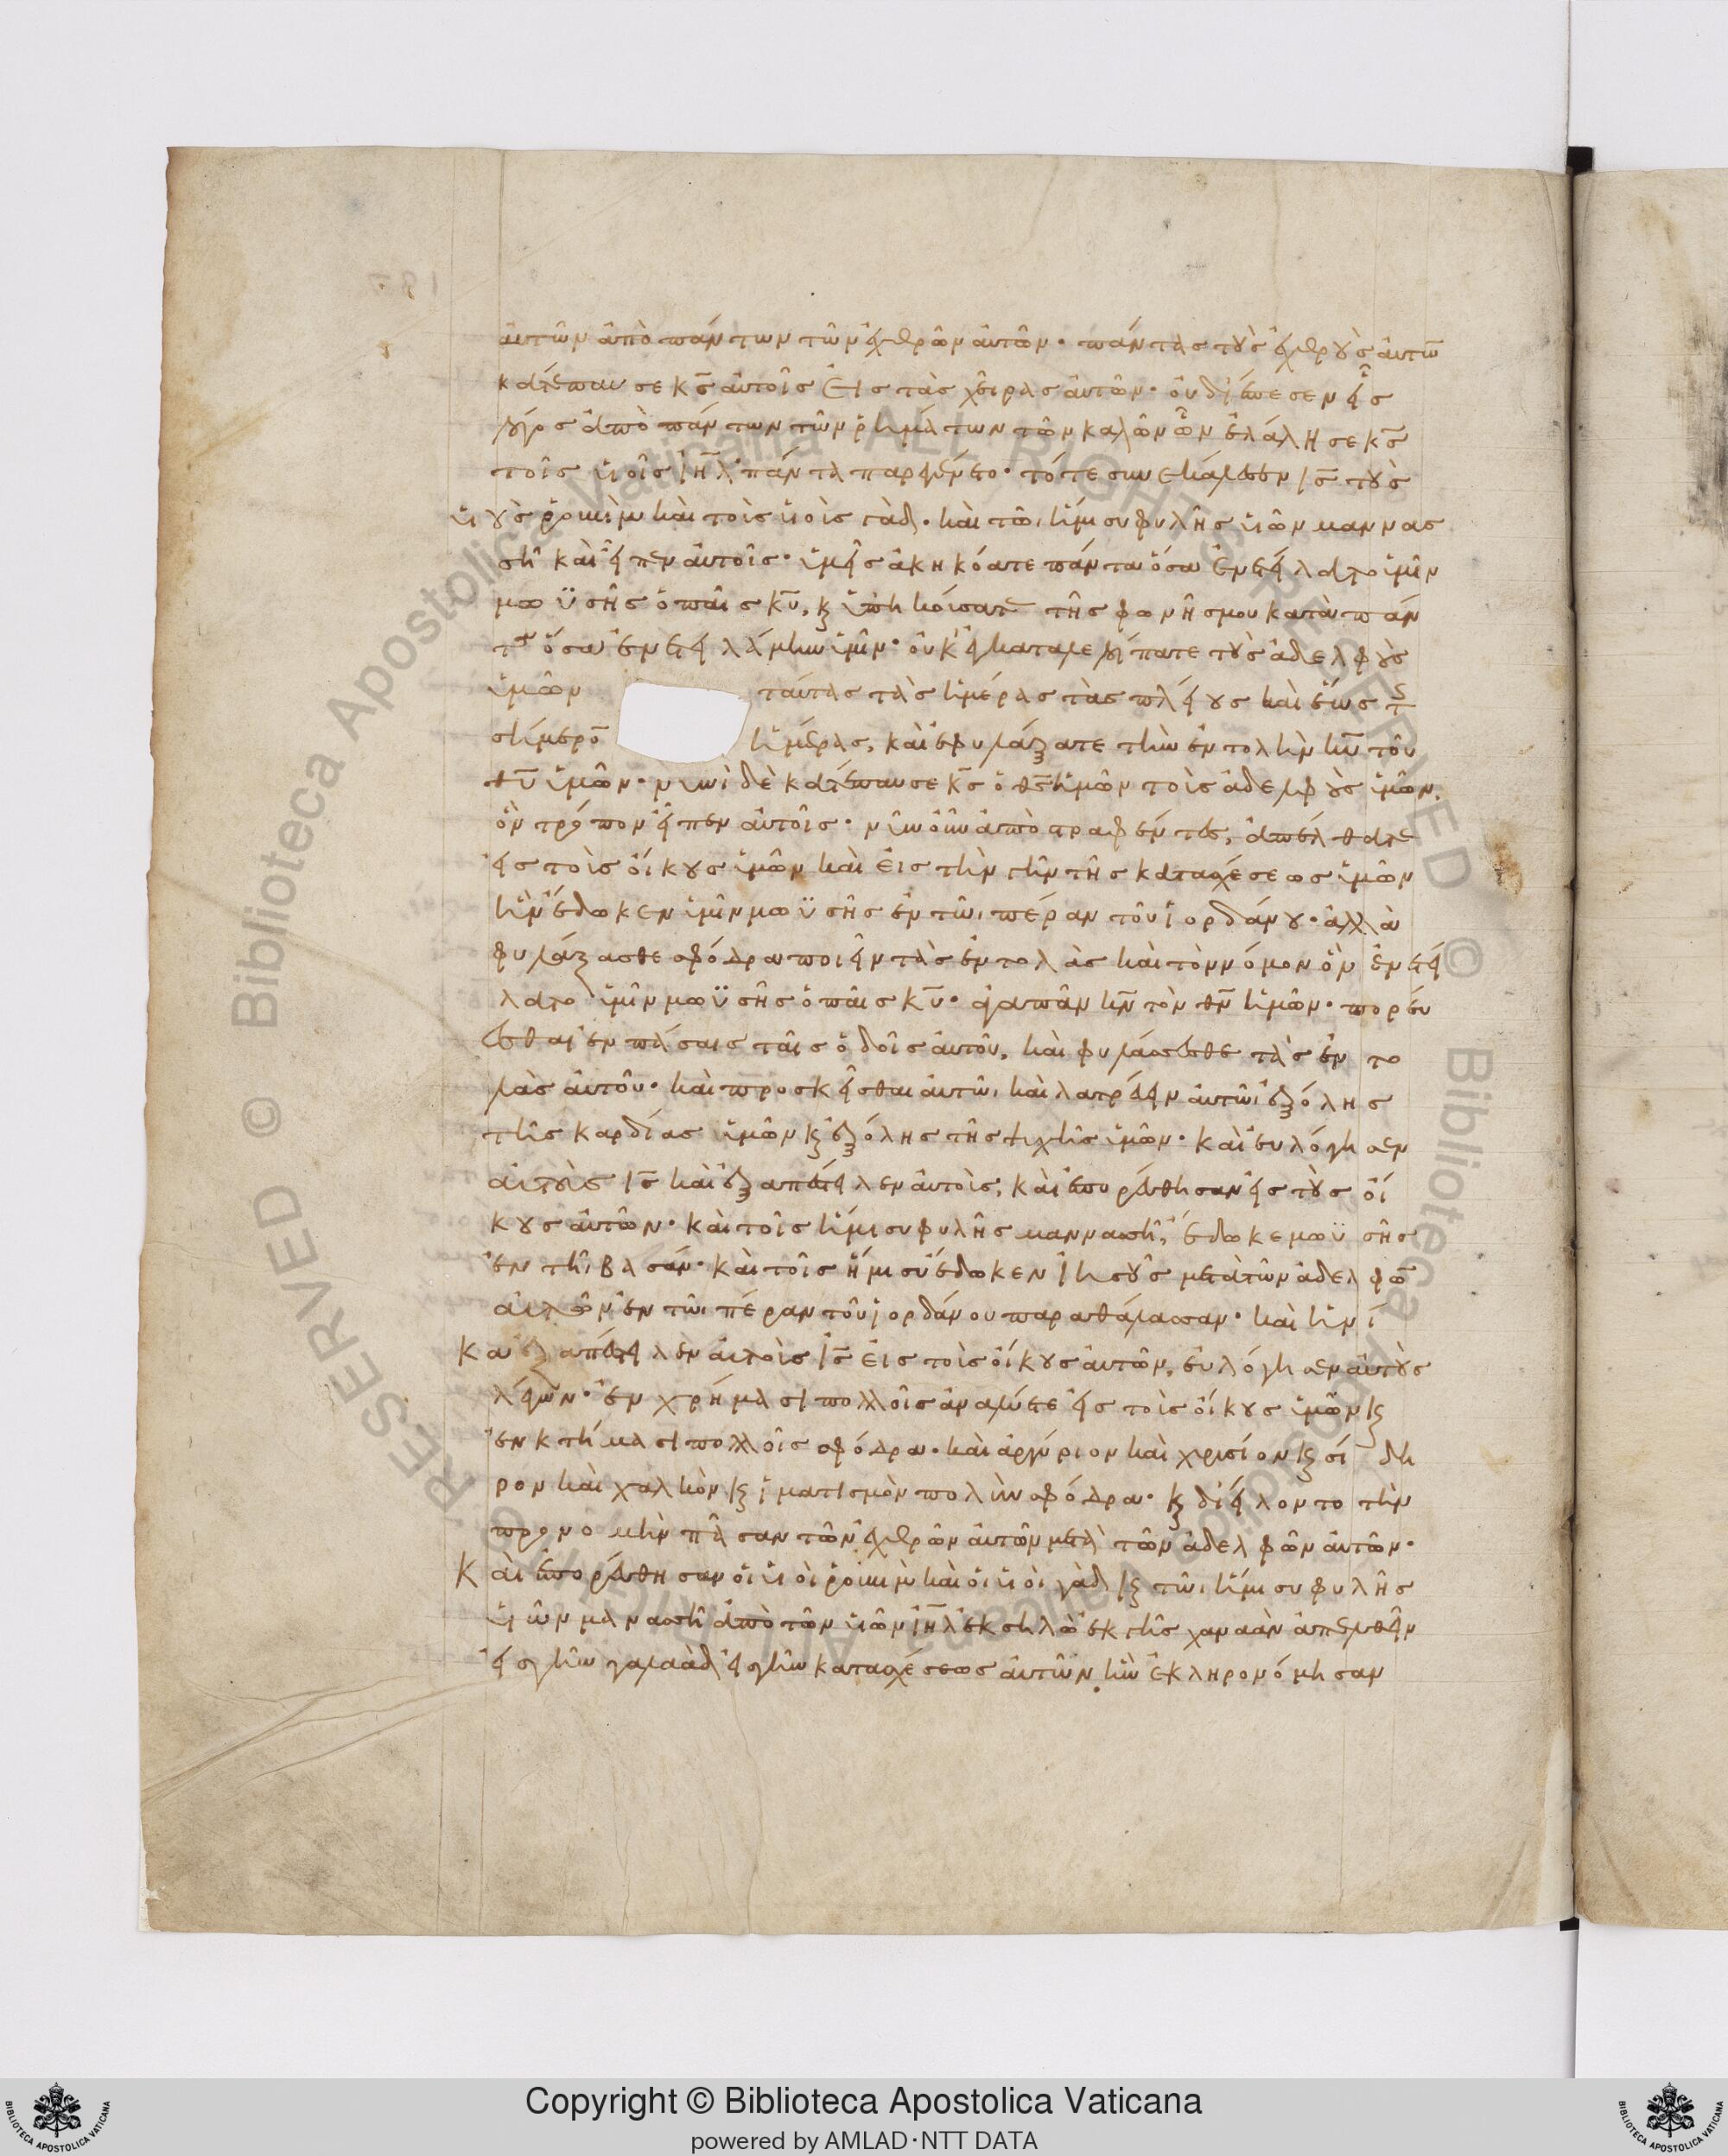 ἀυτῶν ἀπὸ πάντων τῶν ἐχθρῶν ἀυτῶν· πάντας τοὺς ἐχθροὺς ἀυτῶ̅
κατέπαυσε κ̅ς̅ ἀυτοῖς εἰς τὰς χεῖρας ἀυτῶν· οὐ διέπεσεν εἷς
λόγος ἀπὸ πάντων τῶν ῥημάτων τῶν καλῶν ὧν ἐλάλησε κ̅ς̅
τοῖς υἱοῖς ι̅η̅λ̅ πάντα παρεγένετο· τότε συνεκάλεσεν ι̅ς̅ τοὺς
υἱοὺς ῥουβὶμ καὶ τοὶς υἱοὶς γάδ· καὶ τῶ ἡμίσυ φυλῆς υἱῶν μαννας
σῆ καὶ εἶπεν ἀυτοῖς· ὑμεῖς ἀκηκόατε πάντα ὅσα ἐνετείλατο ὑμῖν
μωϋσῆς ὁ παῖς κ̅υ̅, καὶ ὑπηκόυσατε τῆς φωνῆς μου κατὰ πάν
τα ὅσα ἐνετειλάμην ὑμῖν· οὐκ ἐγκαταλελοίπατε τοὺς ἀδελφοὺς
ὑμῶν ταύτας τὰς ἡμέρας τὰς πλείους καὶ ἕως τ
σήμερο̅ ἡμέρας, καὶ ἐφυλάξατε τὴν ἐντολὴν κ̅υ̅ τοῦ
θ̅υ̅ ὑμῶν· νυνὶ δὲ κατέπαυσε κ̅ς̅ ὁ θ̅ς̅ ἡμῶν τοὶς ἀδελφοὺς ὑμῶν,
ὃν τρόπον εἶπεν ἀυτοῖς· νῦν οὖν ἀποστραφέντες, ἀπέλθατε
εἰς τοὶς οἴκους ὑμῶν καὶ εἰς τὴν γῆν τῆς κατασχέσεως ὑμῶν
ἣν ἔδωκεν ὑμῖν μωϋσῆς ἐν τῶ πέραν τοῦ ἰορδάνου· ἀλλὰ
φυλάξασθε σφόδρα ποιεῖν τὰς ἐντολὰς καὶ τὸν νόμον ὃν ἐνετεί
λατο ὑμῖν μωϋσῆς ὁ παῖς κ̅υ̅· ἀγαπᾶν κ̅ν̅ τὸν θ̅ν̅ ἡμῶν· πορεύ
εσθαι ἐν πάσαις ταῖς ὁδοῖς ἀυτοῦ, καὶ φυλάσσεσθε τὰς ἐντο
λὰς ἀυτοῦ· καὶ προσκεῖσθαι ἀυτῶ, καὶ λατρεύειν ἀυτῶ ἐξ ὅλης
τῆς καρδίας ὑμῶν καὶ ἐξ ὅλης τῆς ψυχῆς ὑμῶν· καὶ ευλόγησεν
αὐτοὺς ι̅ς̅ καὶ ἐξαπέστειλεν ἀυτοὶς, καὶ ἐπορεύθησαν εἰς τοὺς οἴ
κους ἀυτῶν· καὶ τοῖς ἡμίσυ φυλῆς μαννασσῆ, ἔδωκε μωϋσῆς
ἐν τῆ βασάν· καὶ τοῖς ἡμισύ ἔδωκεν ἰησοῦς μετὰ τῶν ἀδελφῶ̅
αὐτῶν ἐν τῶ πέραν τοῦ ἰορδάνου παρα θάλασσαν· καὶ ἡνί
κα ἐξαπέστειλεν ἀυτοὶς ι̅ς̅ εἰς τοὶς οἴκους ἀυτῶν, ἐυλόγησεν ἀυτοὺς
λέγων· ἐν χρήμασι πολλοῖς ἀναλύετε εἰς τοὶς οἴκους ὑμῶν καὶ
ἐν κτήμασι πολλοῖς σφόδρα· καὶ ἀργύριον καὶ χρισίον καὶ σίδη
ρον καὶ χαλκὸν καὶ ἱματισμὸν πολὺν σφόδρα· καὶ διείλοντο τὴν
προνομὴν πᾶσαν τῶν ἐχθρῶν ἀυτῶν μετὰ τῶν ἀδελφῶν ἀυτῶν·
Κἀι ἐπορεύθησαν ὁι υἱοὶ ῥουβὶμ καὶ ὁι υἱοὶ γὰδ καὶ τῶ ἡμισυ φυλῆς
υἱῶν μανασσῆ ἀπὸ τῶν υἱῶν ι̅η̅λ̅ ἐκ σηλὼ ἐκ γῆς χαναὰν ἀπελθεῖν
εἰς γῆν γαλαὰδ εἰς γῆν κατασχέσεως ἀυτῶν, ἣν ἐκληρονόμησαν